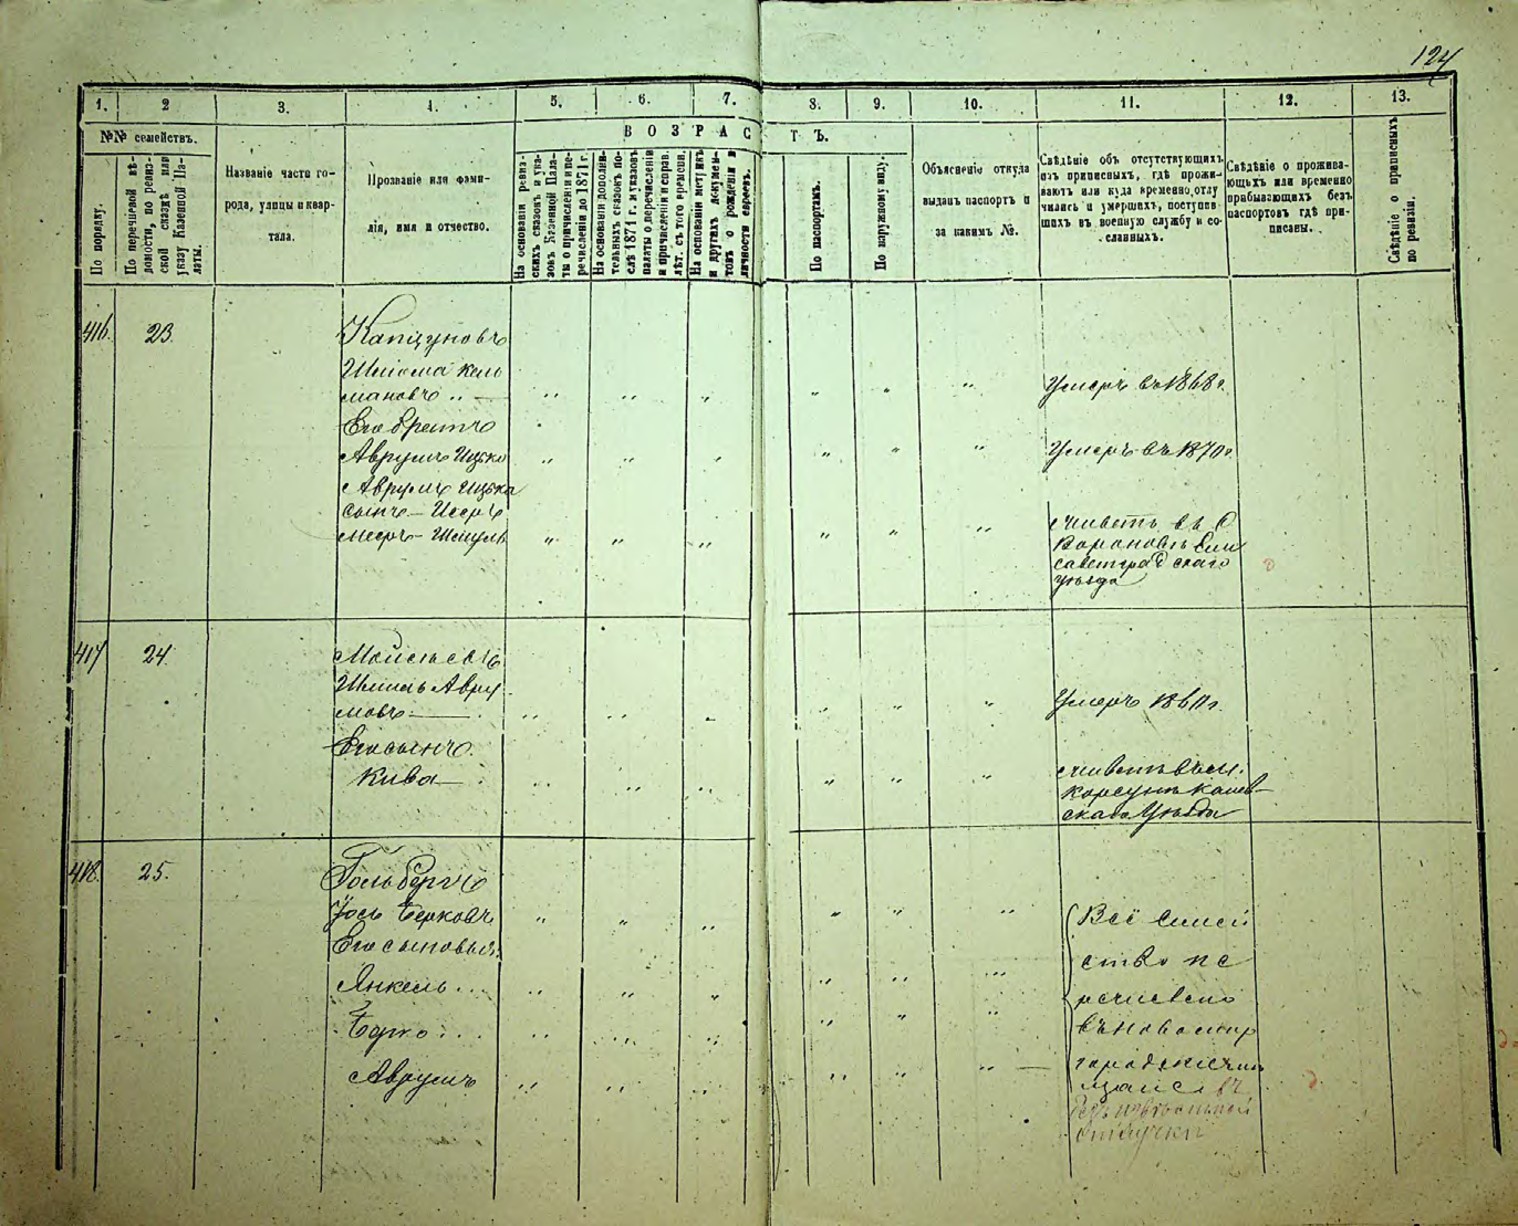 124
1. 2 3. 4. 5. 6. 7. 8. 9. 10. 11. 12. 13.
№№ семействъ.
В О З Р А С Т Ъ.
По порядку.
По перечневой вѣ-
домости, по ревиз-
ской сказкѣ или
указу Казенной Па-
латы.
Названіе части го-
рода, улицы и квар-
тала.
Прозваніе или фами-
лія, имя и отчество.
На основаніи ревиз-
скихъ сказокъ и ука-
зовъ Казенной Пала-
ты о причисленіи и пе-
речисленіи до 1871 г.
На основаніи дополни-
тельныхъ сказокъ по-
слѣ 1871 г. и указовъ
палаты о перечисленіи
и причисленіи и справ.
лѣт. съ того времени.
На основаніи метрикъ
и другихъ докумен-
товъ о рожденіи и
личности евреевъ.
По паспортамъ.
По наружному виду.
Объясненіе откуда
выданъ паспортъ и
за какимъ №.
Свѣдѣніе объ отсутствующихъ
изъ приписныхъ, гдѣ прожи-
ваютъ или куда временно отлу
чились и умершихъ, поступив-
шихъ въ военную службу и со-
сланныхъ.
Свѣдѣніе о прожива-
ющихъ или временно
прабывающихъ безъ
паспортовъ гдѣ при-
писаны.
Свѣдѣніе о приписныхъ
по ревизіи.
416. 23. Капцуновъ
Шліома Кель
мановъ Умеръ въ 1868 г.
Его братъ
Аврумъ Ицко Умеръ въ 1870 г.
Аврумъ Ицька
сынъ - Исеръ
мееръ - Шмуль живетъ въ С
Елиса
саветградскаго
уѣзда
417 24. Мойсьевъ
Шмиль Авру
мовъ Умеръ
Его сынъ
Кива живетъ въ м.
Корсунь Канев-
скаго Уѣзда
418. 25. Гольбергъ
Іось Берковъ Всё семей
Его сыновья:
Янкель ство пе
речислено
Берко въ новомир
городскіе мѣ
Аврумъ щане въ